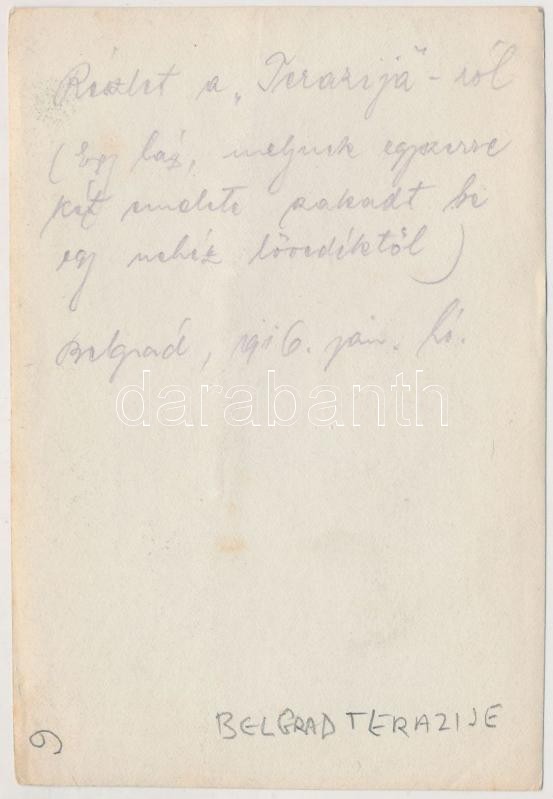 Részlet a „Terazija"-ról
(Egy ház, melynek egyszerre
két emelete szakadt be
egy nehéz lövedéktől)
Belgrad, 1916. jan. hó.
darabanth
BELGRAD TERAZIJE
6